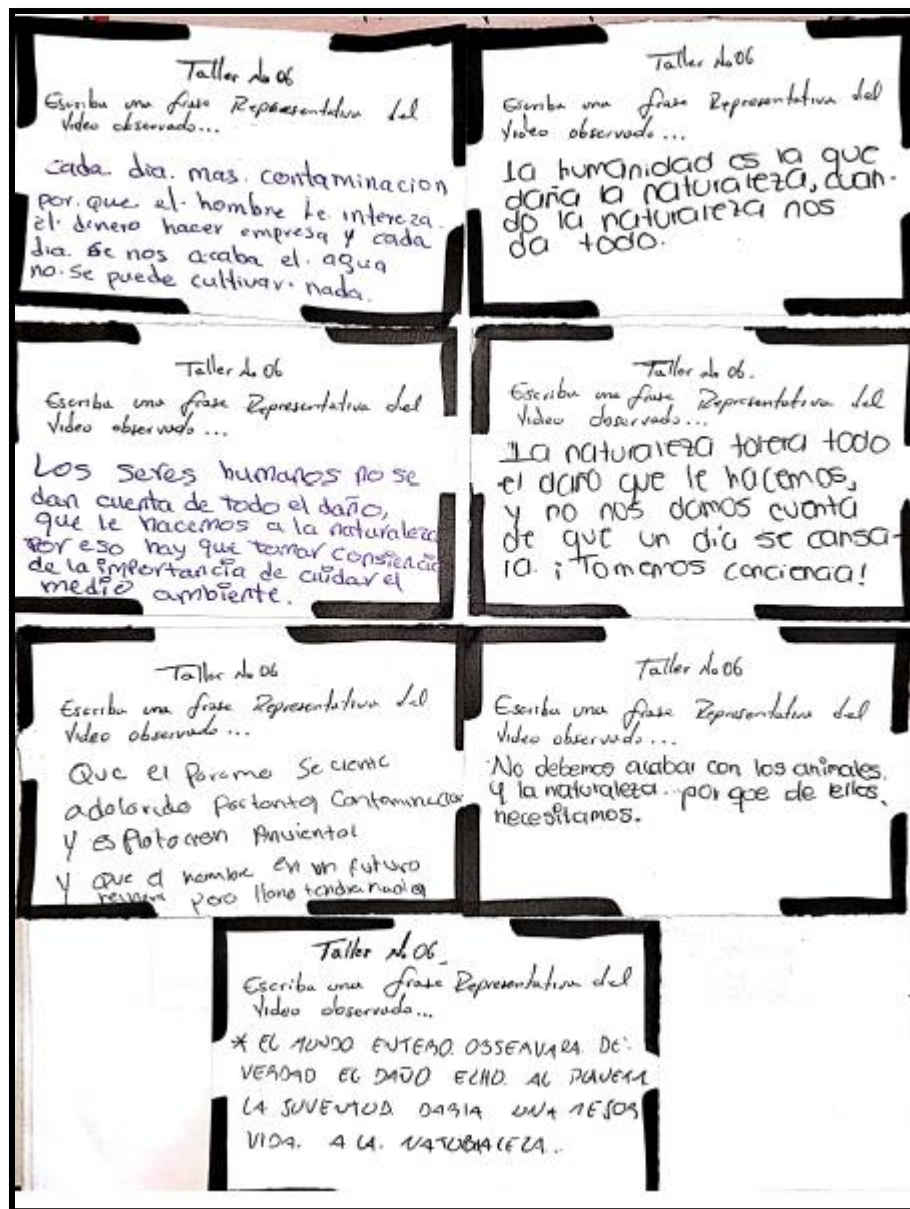 Taller No 06
Escriba una frase Representativa del
Video observado...
Cada dia. mas. contaminacion
por. que el. hombre Le. intereza.
El. dinero hacer empresa y cada
dia. se nos acaba el. agua
no. se puede cultivar. nada.
Taller No 06
Escriba una frase Representativa del
Video observado...
La humanidad es la que
daña la naturaleza, cuan-
do la naturaleza nos
da todo.
Taller No 06
Escriba una frase Representativa del
Video observado...
Los seres humanos no se
dan cuenta de todo el daño,
que le hacemos a la naturaleza
Por eso hay que tomar consiencia
de la importancia de cuidar el
medio ambiente.
Taller No 06.
Escriba una frase Representativa del
Video observado...
La naturaleza tolera todo
el daño que le hacemos,
y no nos damos cuenta
de que un dia se cansa-
ra. ¡Tomemos conciencia!
Taller No 06
Escriba una frase Representativa del
Video observado...
Que el Paramo Se ciente
adolorido Por tanta Contaminacion
y esplotacion Anviental
y que el hombre en un futuro
pero llano tendra nada
Taller No 06
Escriba una frase Representativa del
Video observado...
No debemos acabar con los animales.
y la naturaleza.. por que de ellos.
necesitamos.
Taller No. 06
Escriba una frase Representativa del
Video observado...
* EL MUNDO ENTERO. OBSERVARA. DE.
VERDAD EL DAÑO ECHO. AL PLANETA
LA JUVENTUD. DARIA UNA MEJOR
VIDA. A LA. NATURALEZA..